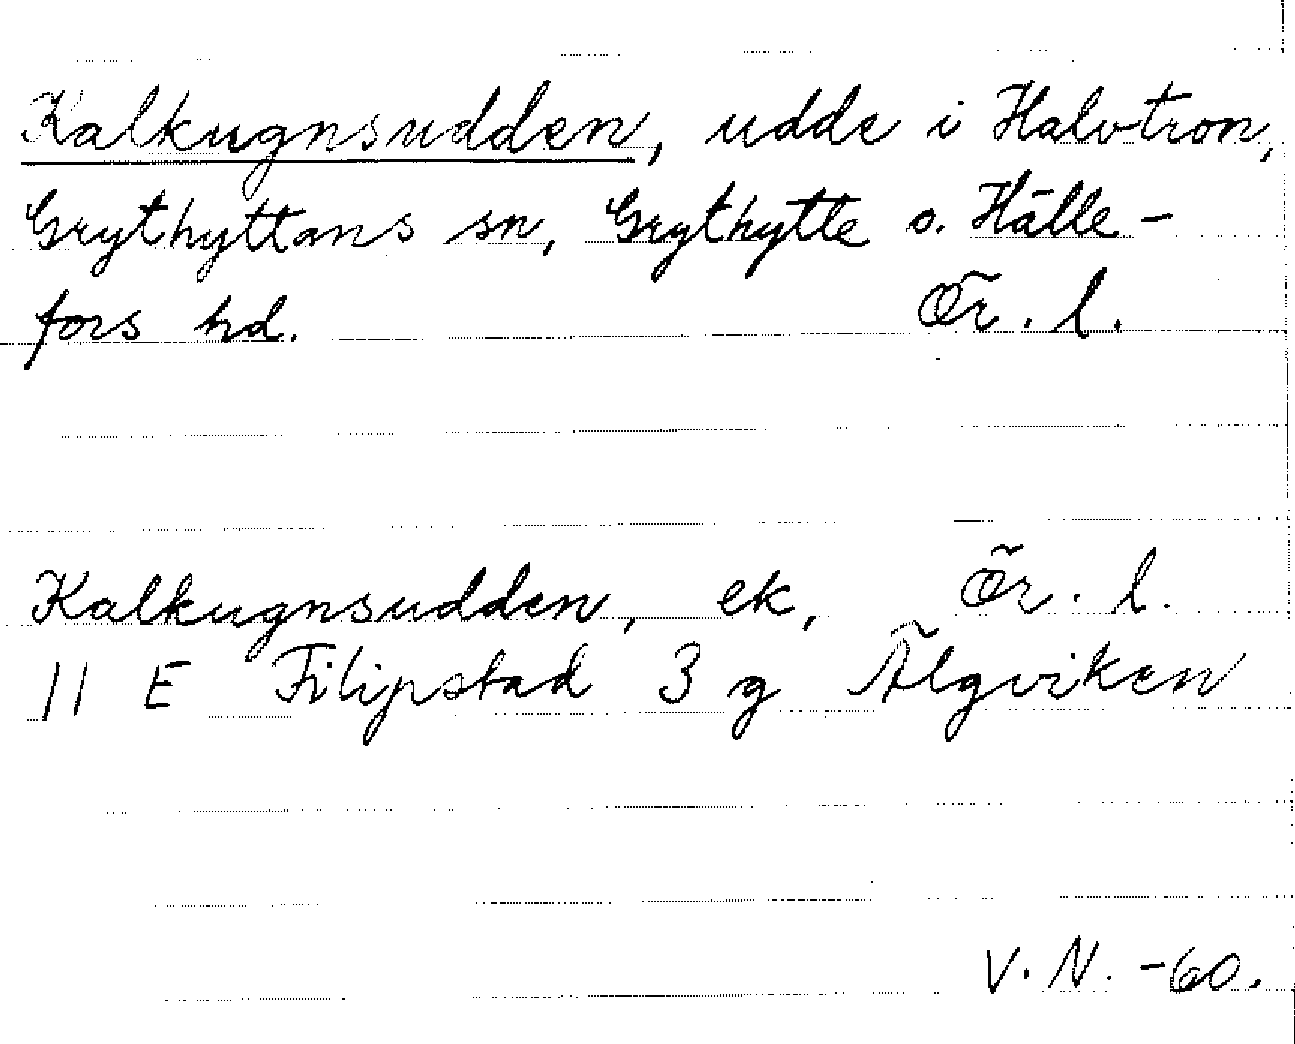 Kalkugnsudden, udde i Halvtron,
Grythyttans sn, Grythytte o. Hälle-
fors hd. Ör. l.
Kalkugnsudden, ek, Ör. l.
11 E Filipstad 3 g Älgviken
V. N. -60.